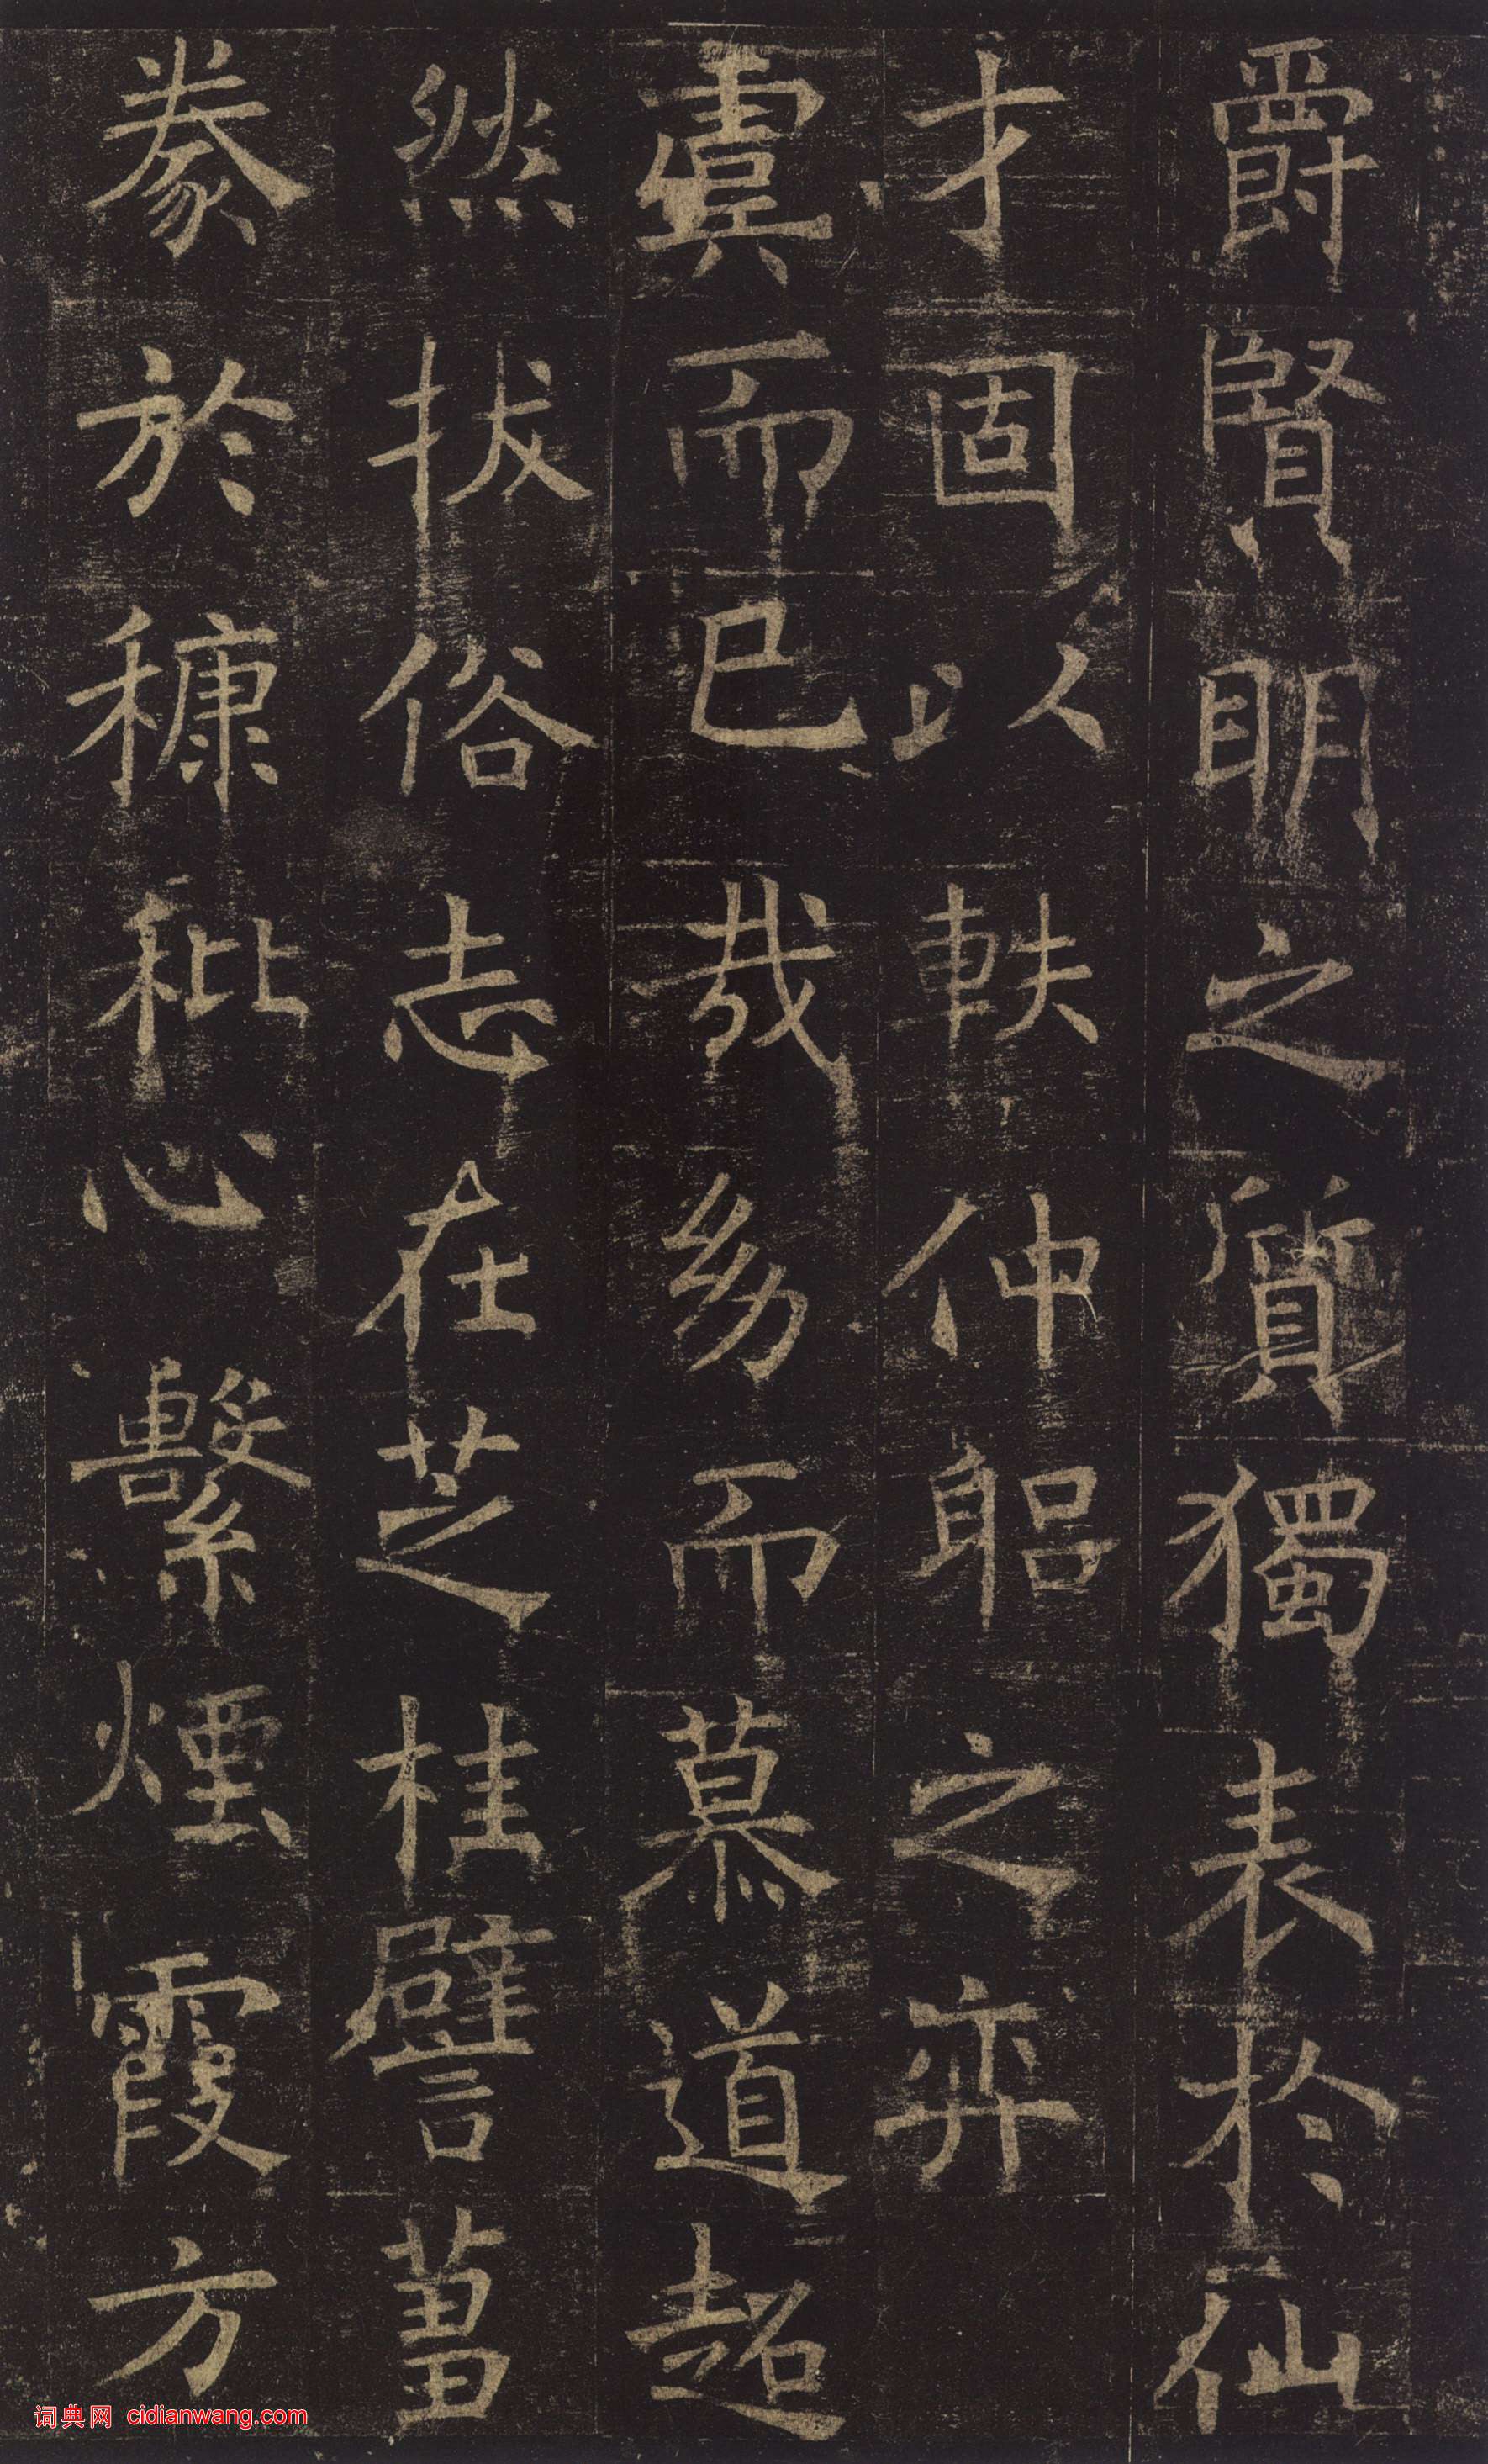 爵賢明之質獨表於仙
才固以軼仲躳之弈
而已哉幼而慕道超
然拔俗志在芝桂譬芻
豢於穅粃心繫煙霞方
词典网 cidianwang.com